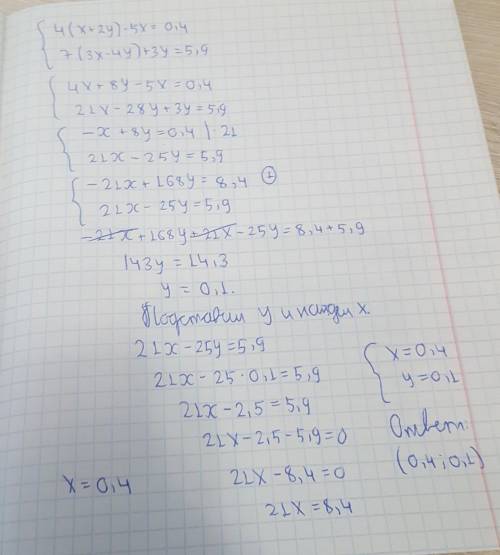 4(x+2y)-5x=0,4
7(3x-4y)+3y=5,9
4x+8y-5x=0,4
21x-28y+3y=5,9
-x+8y=0,4 | ·21
21x-25y=5,9
-21x+168y=8,4 (+)
21x-25y=5,9
-21x+168y+21x-25y=8,4+5,9
143y=14,3
y=0,1.
Подставим y и найдем x.
21x-25y=5,9
21x-25·0,1=5,9
21x-2,5=5,9
21x-2,5-5,9=0
21x-8,4=0
21x=8,4
x=0,4
x=0,4
y=0,1
Ответ:
(0,4;0,1)